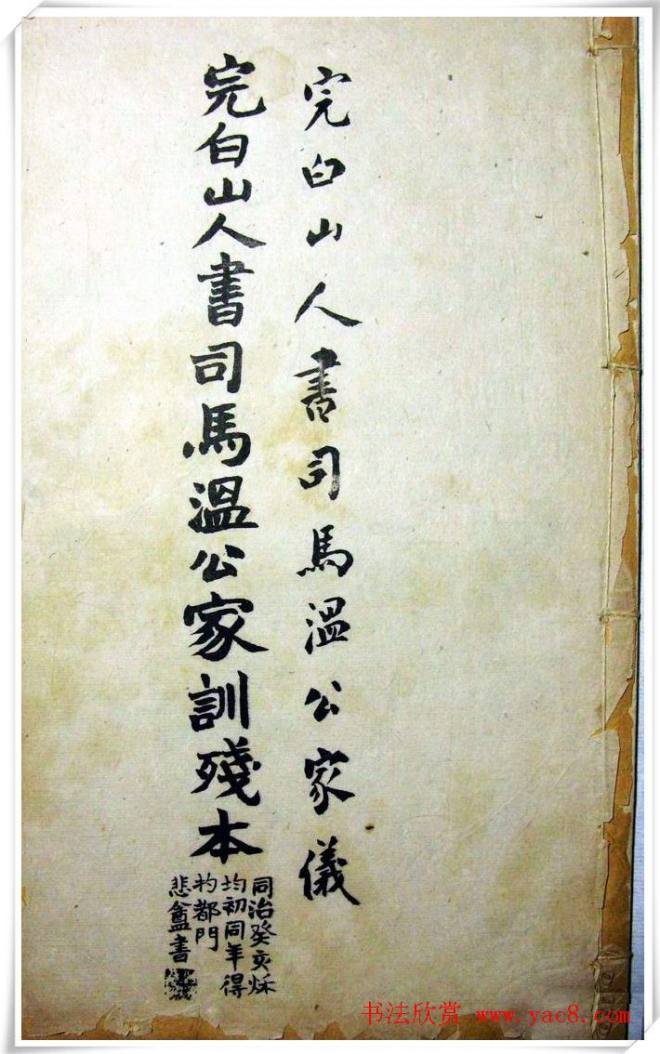 完白山人書司馬溫公家儀
完白山人書司馬溫公家訓殘本
同治癸亥秌
均初同年得
於都門
悲盦書
书法欣赏 www.yac8.com